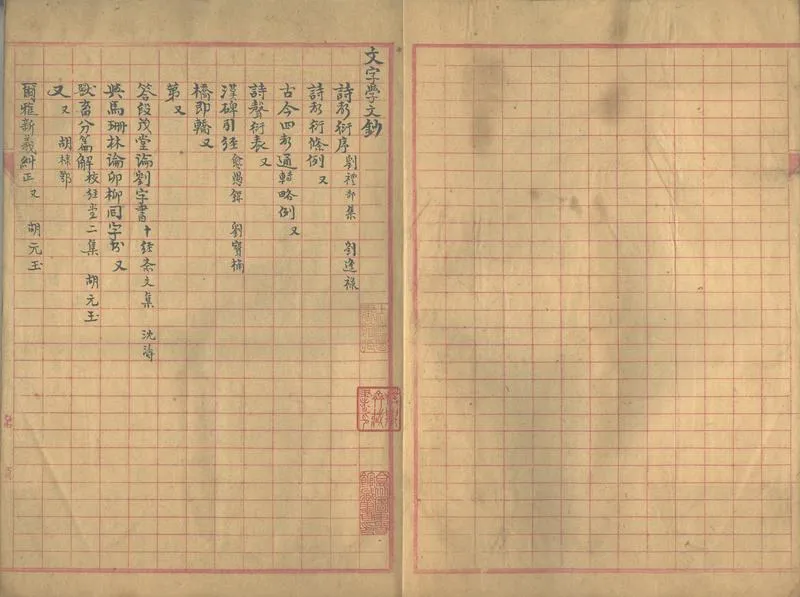 文字學文鈔
詩声衍序 劉禮部集 劉逢祿
詩声衍條例 又
古今四声通轉略例 又
詩聲衍表 又
漢碑引经 愈愚錄 劉寶楠
橋即轎 又
第 又
答段茂堂論劉字書 十经斋文集 沈濤
與馬珊林論卯柳同字书 又
獸畜分篇解 校经堂二集 胡元玉
又 又 胡棣鄂
爾雅新義糾正 又 胡元玉